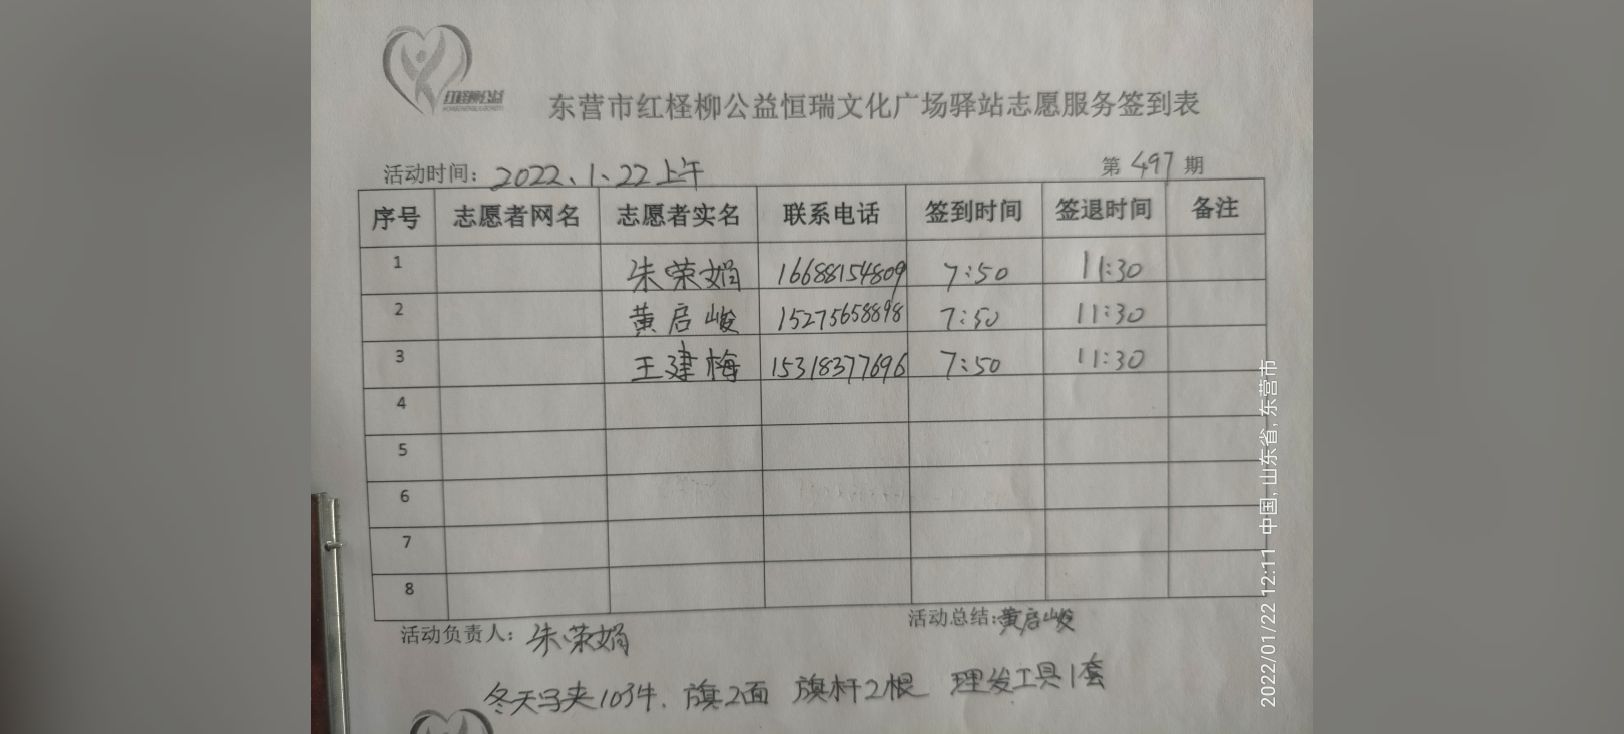 红柽柳公益
东营市红柽柳公益恒瑞文化广场驿站志愿服务签到表
活动时间: 2022、1、22上午 第 497 期
序号 志愿者网名 志愿者实名 联系电话 签到时间 签退时间 备注
1 朱荣娟 16688154809 7:50 11:30
2 黄启峻 15275658898 7:50 11:30
3 王建梅 15318377696 7:50 11:30
4
5
6
7
8
活动负责人: 朱荣娟 活动总结:黄启峻
冬天马夹10件. 旗2面 旗杆2根 理发工具1套
2022/01/22 12:11 中国, 山东省, 东营市